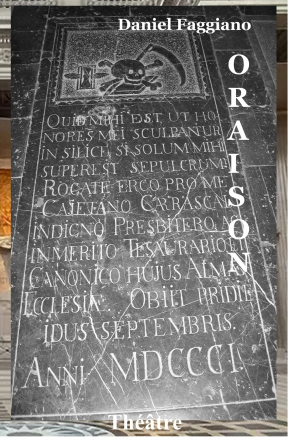 Daniel Faggiano
ORAISON
QUID MIHI EST, UT HO
NORES MEI SCULPANTUR
IN SILICE, SI SOLUM MIHI
SUPEREST SEPULCRUM?
ROGATE ERGO PRO ME
CAJETANO CARRASCAL
INDIGNO PRESBITERO AC
INMERITO TESAURARIO, ET
CANONICO HUJUS ALMÆ
ECCLESIÆ. OBIIT PRIDIE
IDUS SEPTEMBRIS.
ANNI MDCCCI.
Théâtre